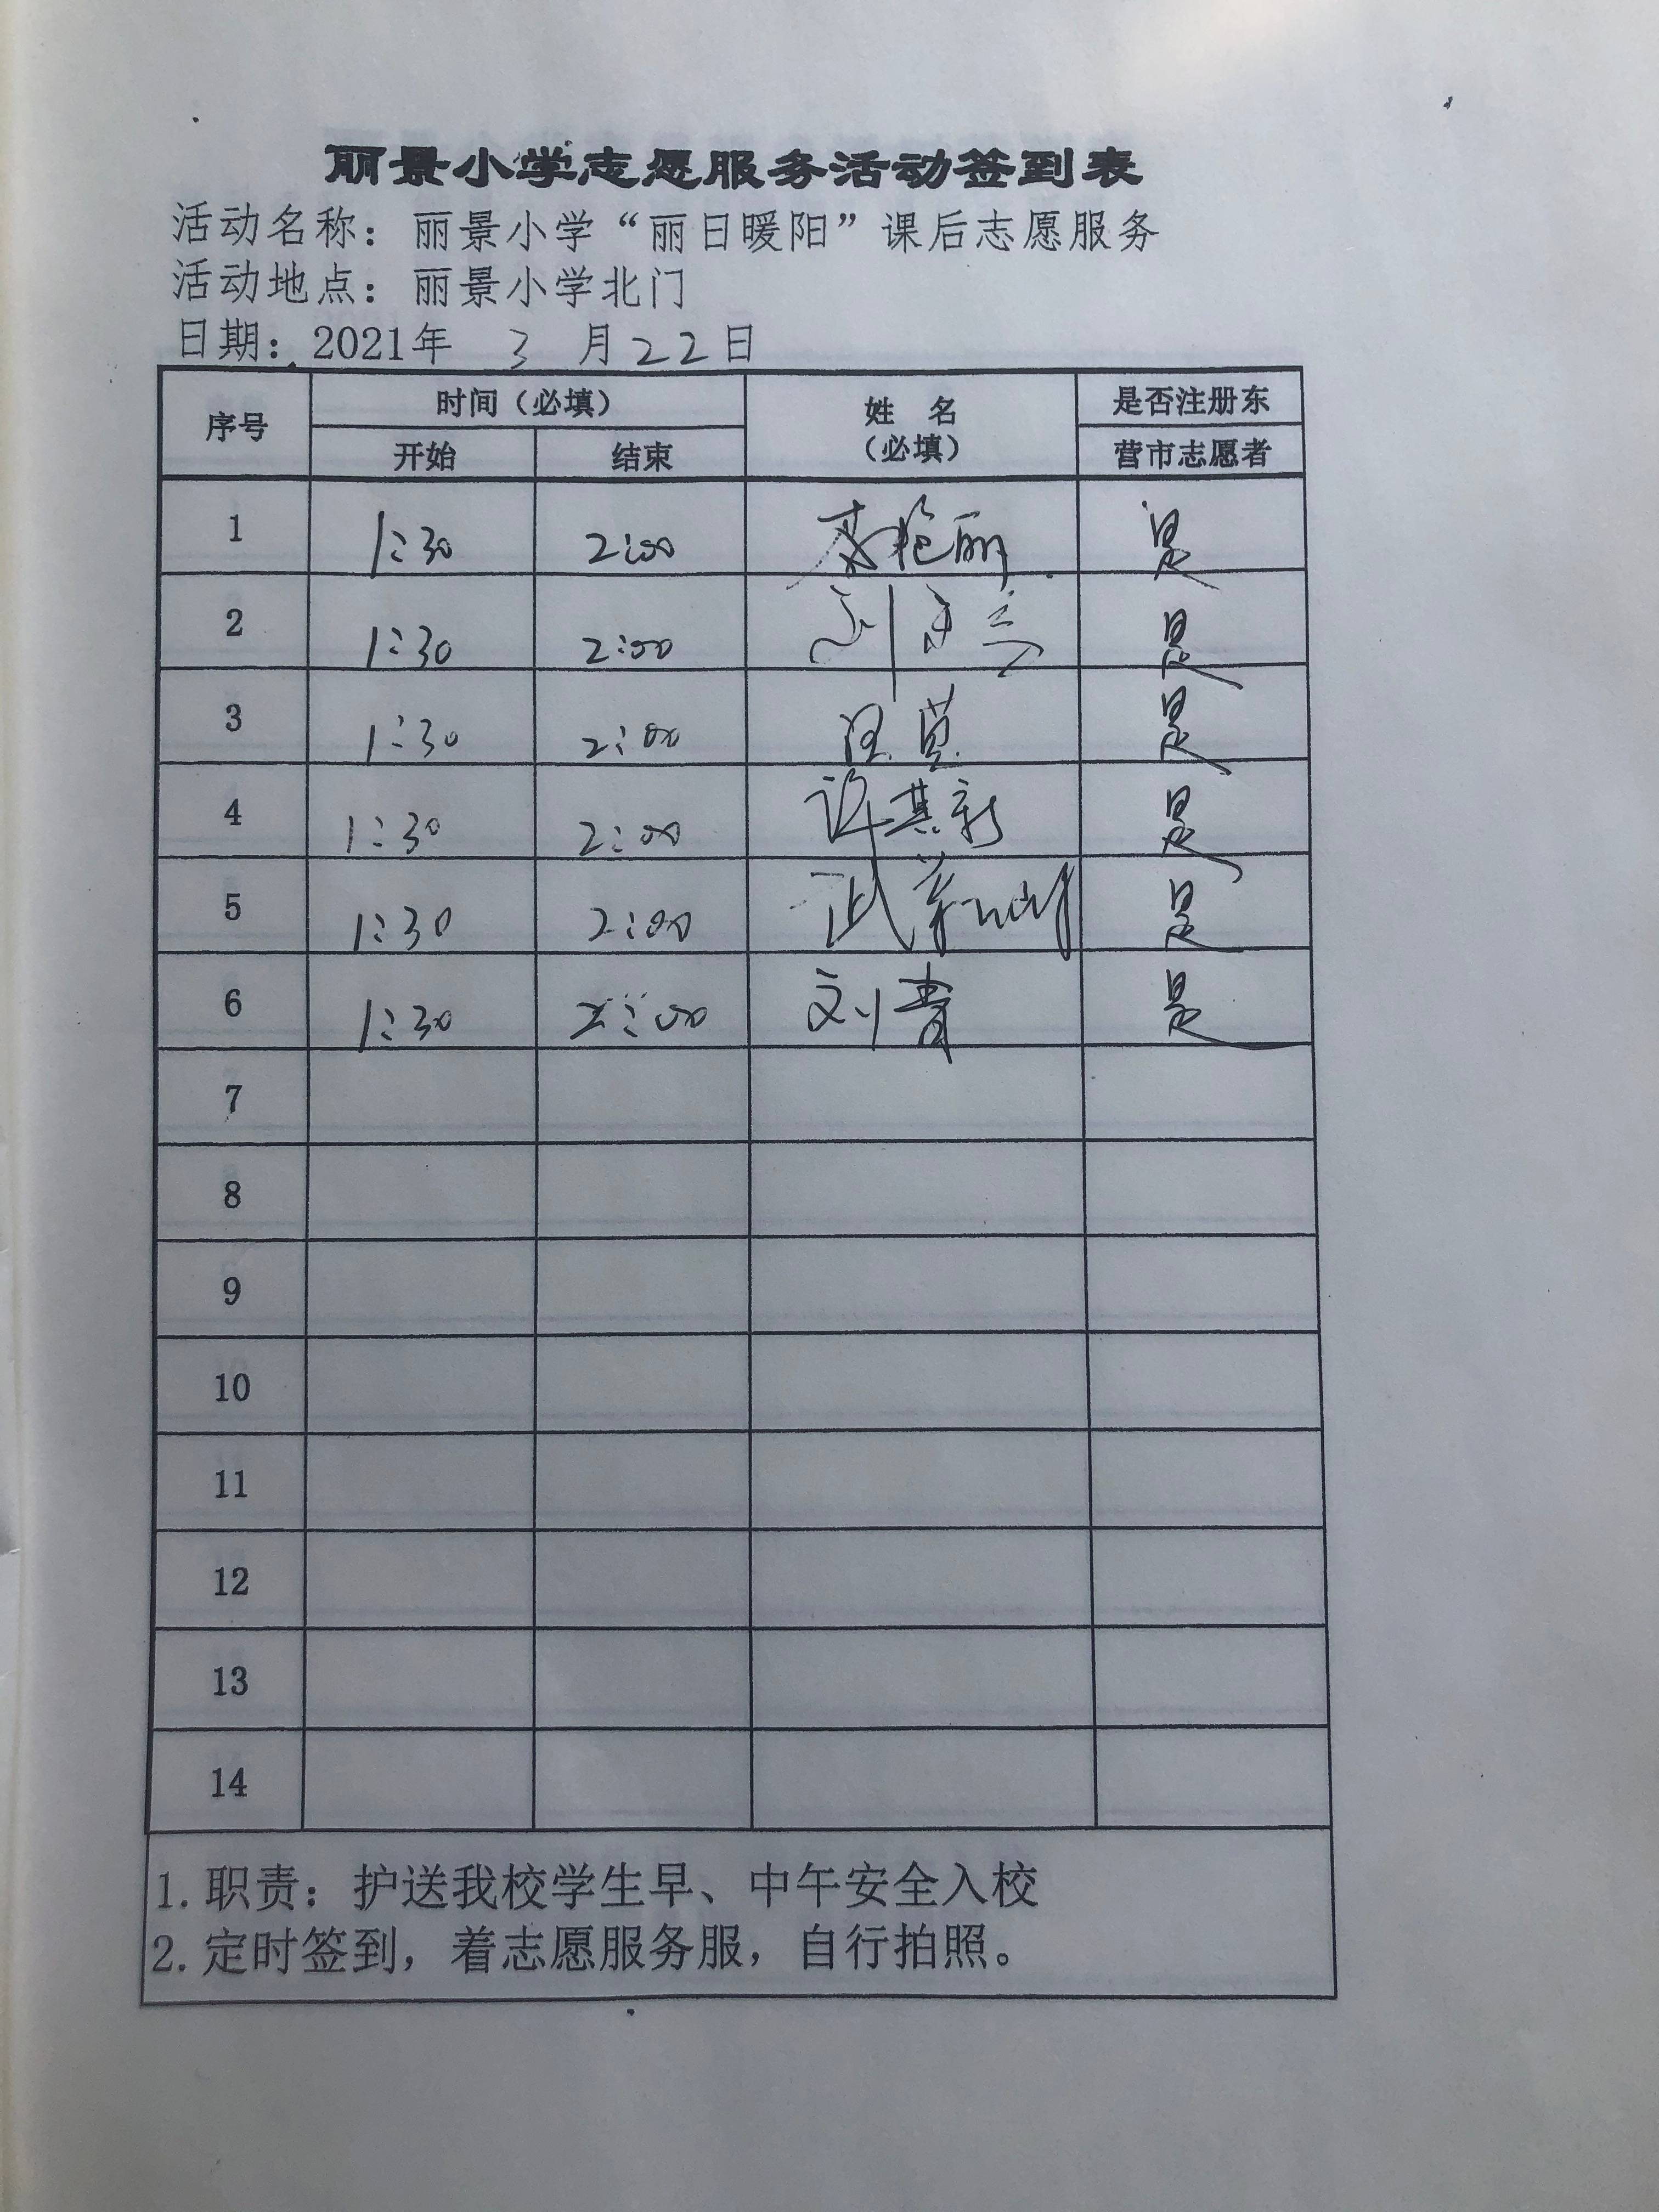 丽景小学志愿服务活动签到表
活动名称：丽景小学“丽日暖阳”课后志愿服务
活动地点：丽景小学北门
日期：2021年 3 月 22 日
序号 时间（必填） 姓 名（必填） 是否注册东营市志愿者
开始 结束
1 1:30 2:00 李艳丽 是
2 1:30 2:00 刘 是
3 1:30 2:00 是
4 1:30 2:00 许其新 是
5 1:30 2:00 武 是
6 1:30 2:00 刘青 是
7
8
9
10
11
12
13
14
1.职责：护送我校学生早、中午安全入校
2.定时签到，着志愿服务服，自行拍照。